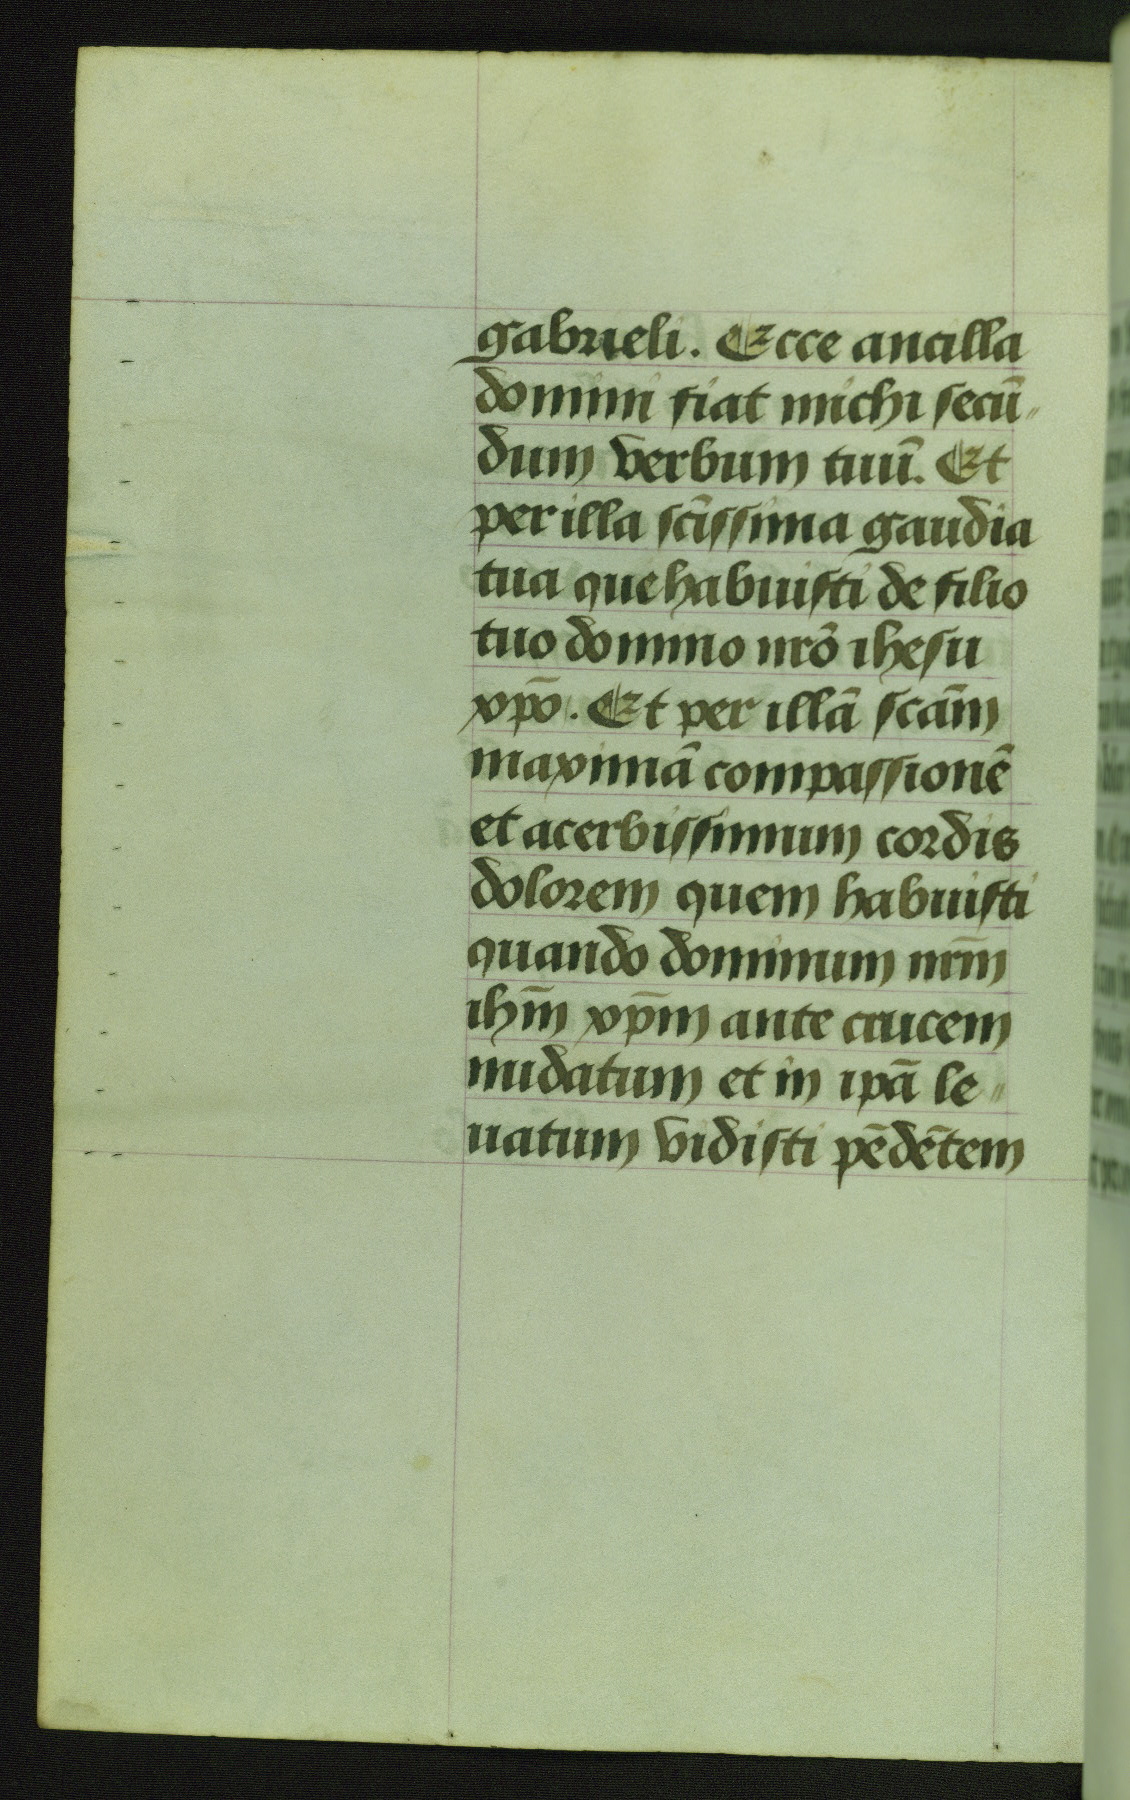 gabrieli. Ecce ancilla
domini fiat michi secū-
dum verbum tuū. Et
per illa sc̄issima gaudia
tua que habuisti de filio
tuo domino nr̄o ihesu
xp̄o. Et per illā scām
maximā compassionē
et acerbissimum cordis
dolorem quem habuisti
quando dominum nr̄m
ihm̄ xp̄m ante crucem
nudatum et in ipā le-
uatum vidisti pēdētem